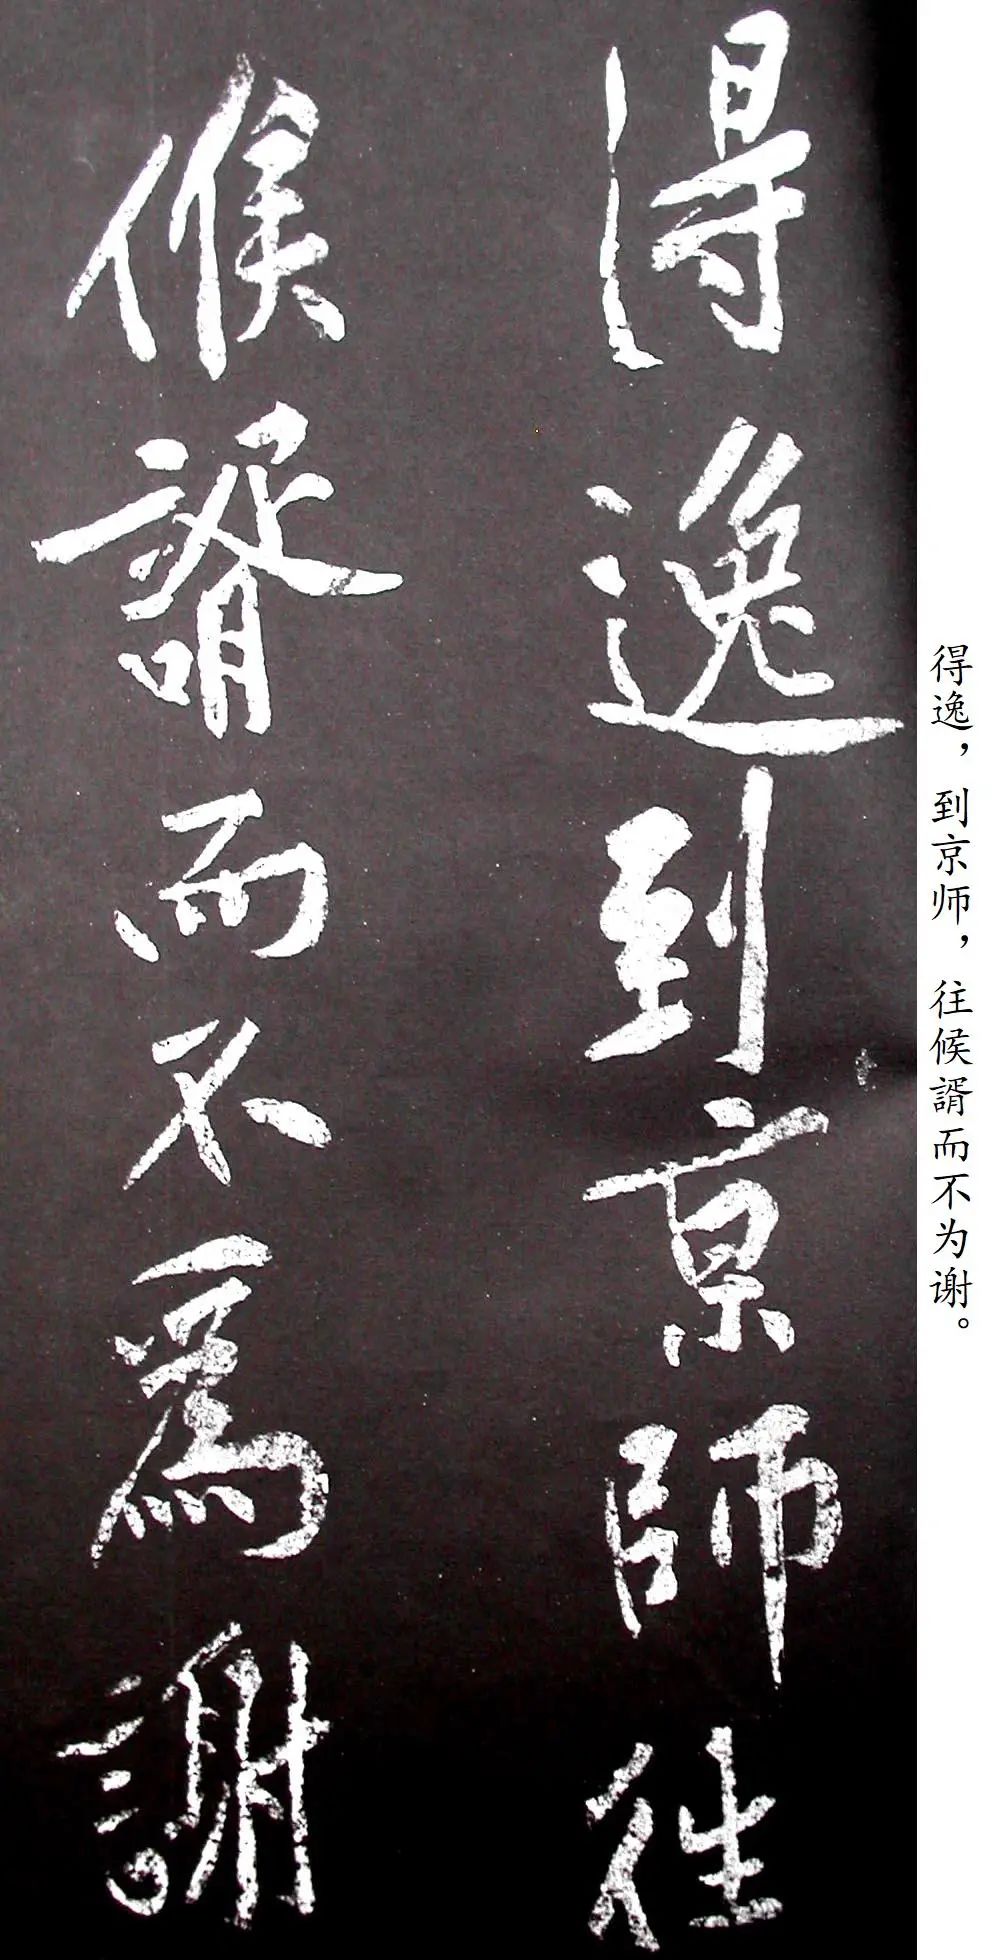 得逸到京師往
候谞而不為謝
得逸，到京师，往候谞而不为谢。